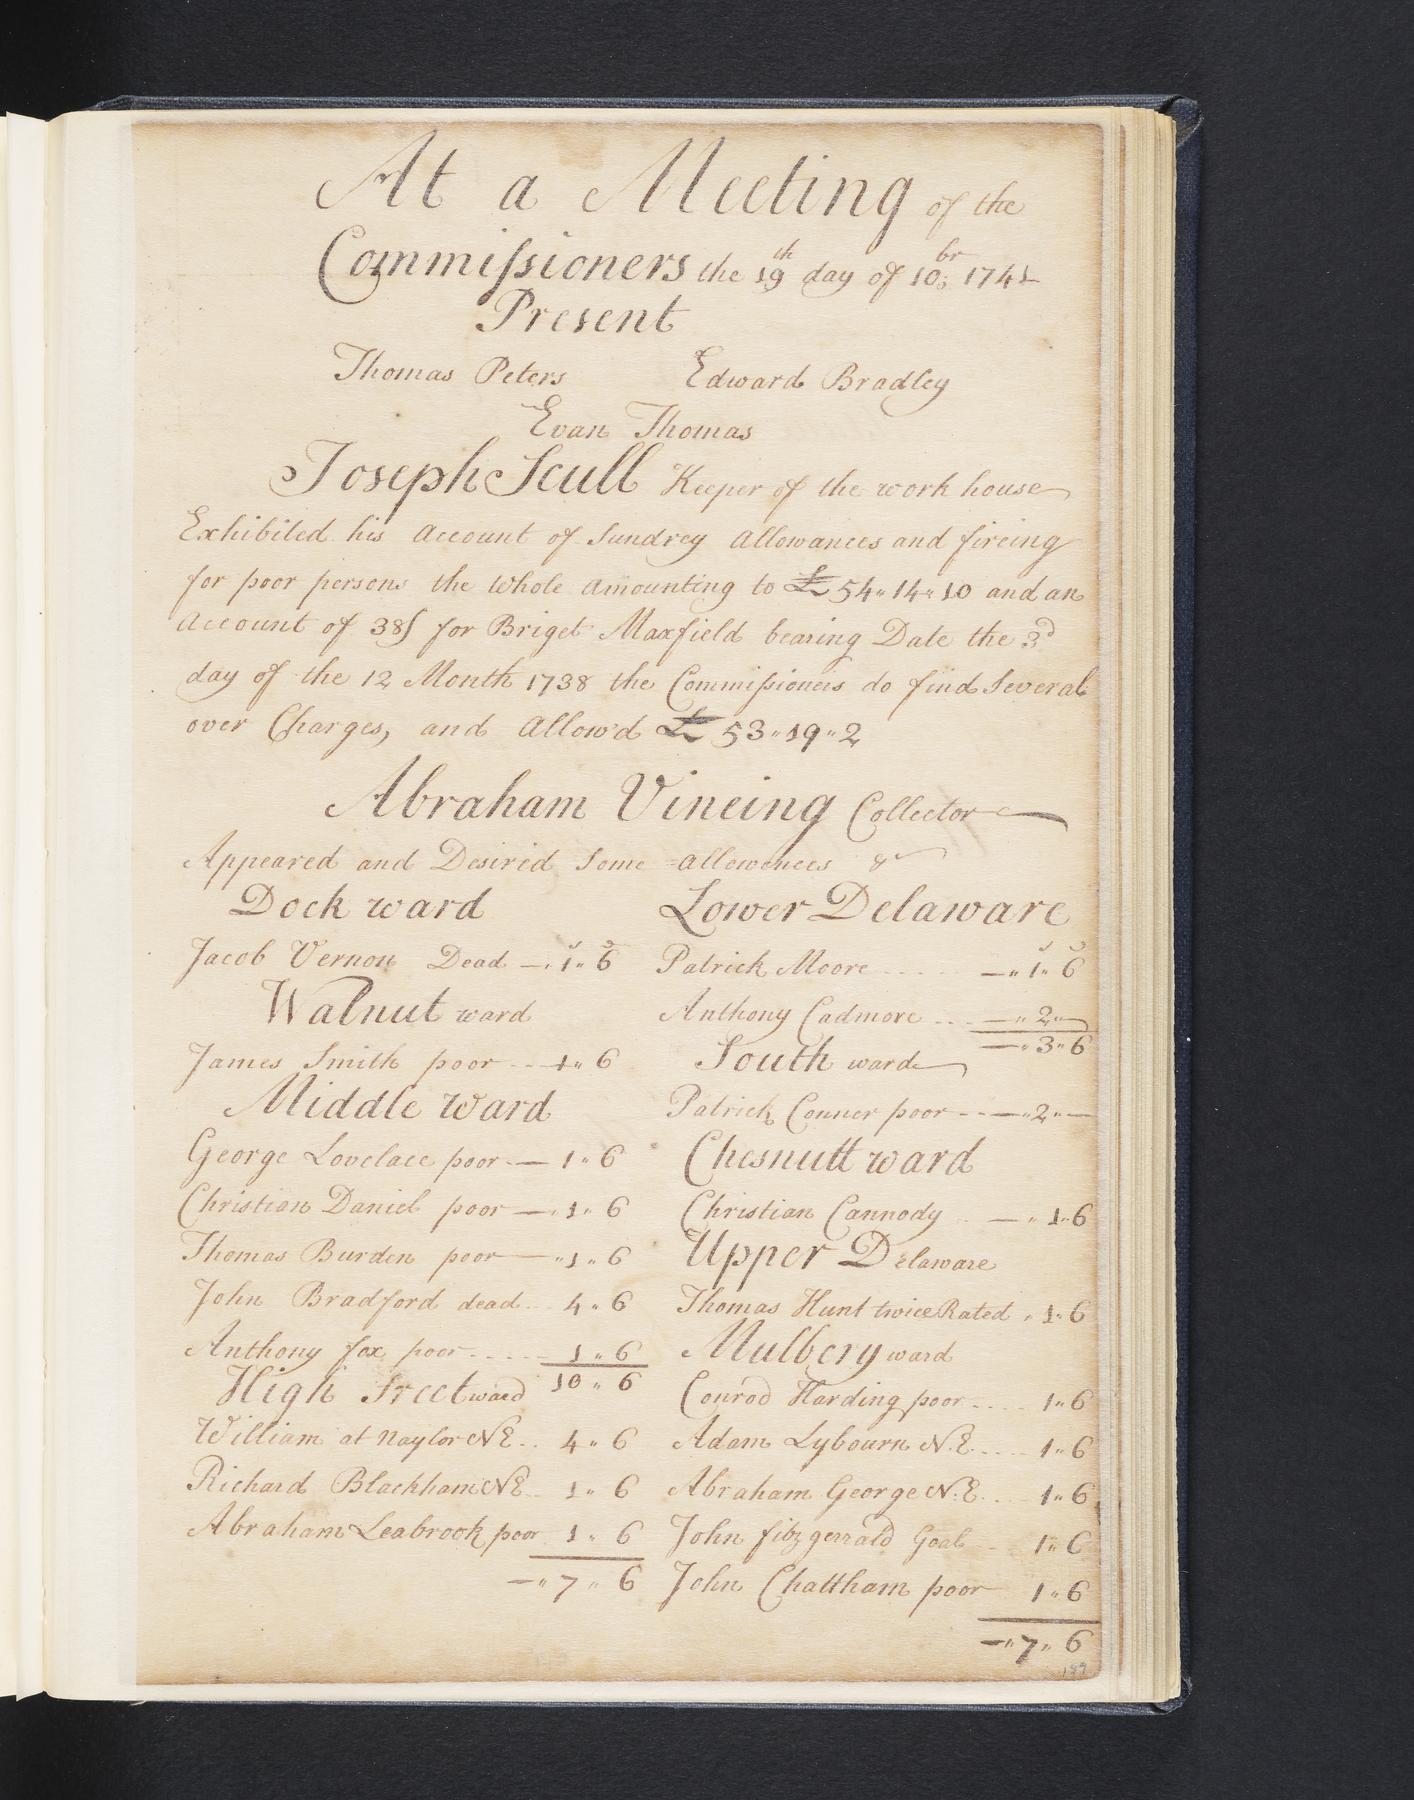 At a Meeting of the
Commissioners the 19th day of 10br 1741
Present
Thomas Peters Edward Bradley
Evan Thomas
Joseph Scull Keeper of the work house
Exhibited his account of Sundrey allowances and fireing
for poor persons the whole amounting to £ 54"14"10 and an
account of 38s for Briget Maxfield bearing Date the 3d
day of the 12 Month 1738 the Commissioners do find Several
over Charges, and Allow'd £ 53"19"2
Abraham Vineing Collector
Appeared and Desired Some allowences &c
Dock ward
Jacob Vernon Dead —"1"6
Walnut ward
James Smith poor 1"6
Middle Ward
George Lovelace poor — 1"6
Christian Daniel poor —"1"6
Thomas Burden poor —"1"6
John Bradford dead 4"6
Anthony fox poor 1"6
10"6
High Street ward
William at Naylor NE 4"6
Richard Blackham NE 1"6
Abraham Leabrook poor 1"6
—"7"6
Lower Delaware
Patrick Moore —"1"6
Anthony Cadmore —"2"—
—"3"6
South ward
Patrick Conner poor —"2"—
Chesnutt ward
Christian Cannody —"1"6
Upper Delaware
Thomas Hunt twice Rated "1"6
Mulbery ward
Conrod Harding poor 1"6
Adam Lybourn N.E. 1"6
Abraham George N.E. 1"6
John fitzgerrald Goal 1"6
John Chattham poor 1"6
—"7"6